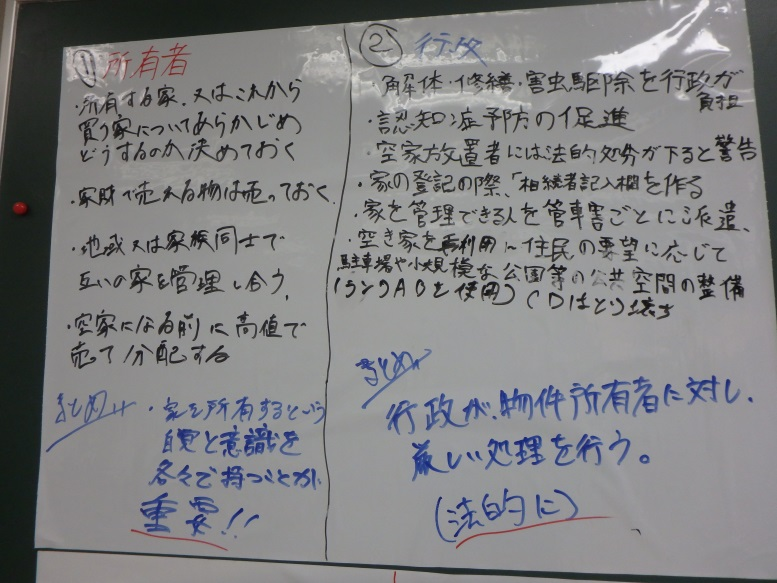 ① 所有者
・所有する家、又はこれから
買う家についてあらかじめ
どうするのか決めておく
・家財で売れる物は売っておく
・地域又は家族同士で
互いの家を管理し合う、
・空家になる前に高値で
売って分配する
まとめ
・家を所有するという
自覚と意識を
各々で持つことが
重要!!
② 行政
・解体・修繕・害虫駆除を行政が
負担
・認知症予防の促進
・空家放置者には法的処分が下ると警告
・家の登記の際、「相続者記入欄を作る
・家を管理できる人を管轄ごとに派遣、
・空き家を再利用〜住民の要望に応じて
駐車場や小規模な公園等の公共空間の整備
(ランクABを使用) (Dはとり壊す
まとめ
行政が、物件所有者に対し、
厳しい処理を行う。
(法的に)